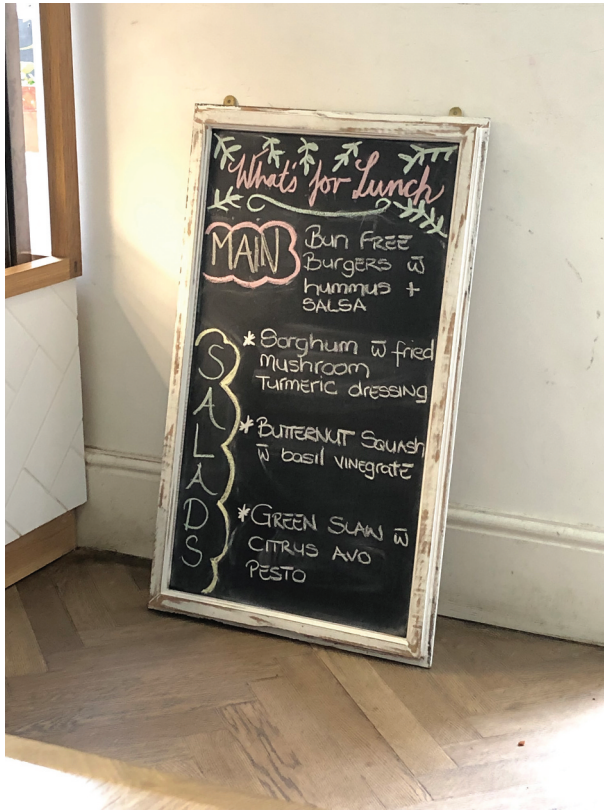 What's for Lunch
MAIN
Bun FREE
Burgers w̅
hummus +
SALSA
SALADS
* Sorghum w̅ fried
mushroom
Turmeric dressing
* BUTTERNUT SQUASH
w̅ basil VINEGRATE
* GREEN SLAW w̅
CITRUS AVO
PESTO